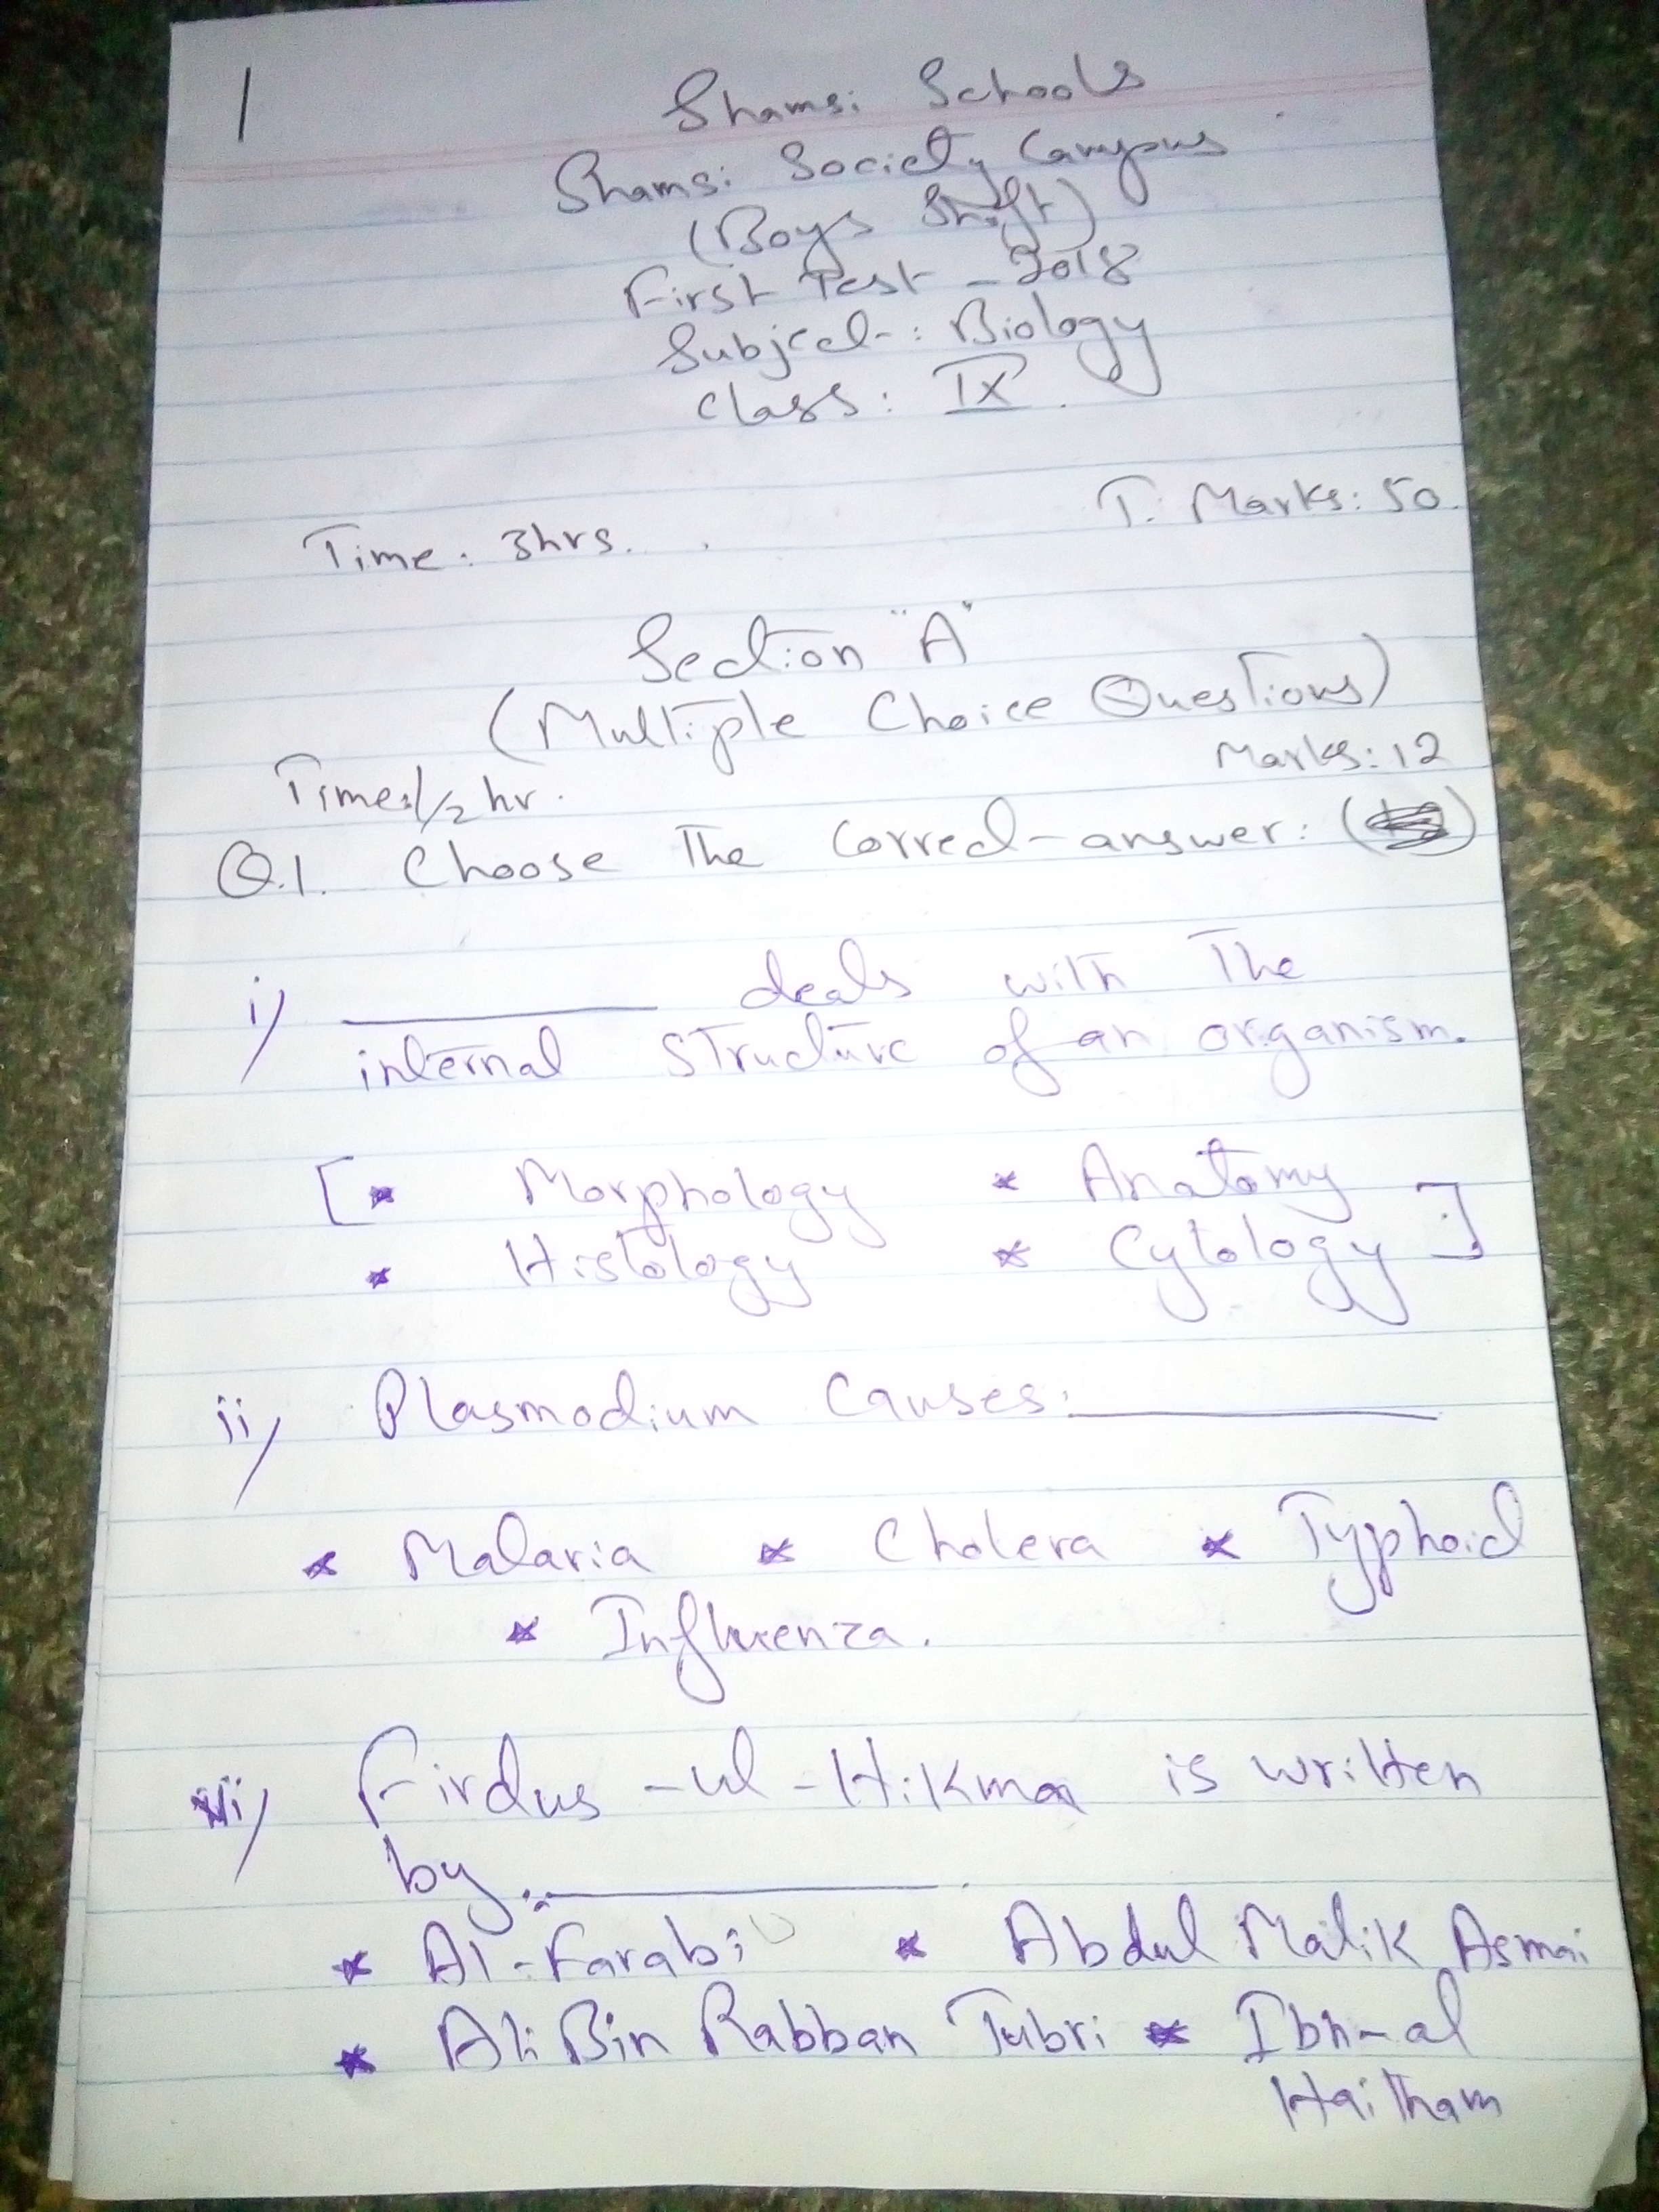 1
Shamsi Schools
Shamsi Society Campus
(Boys Shift)
First Test - 2018
Subject: Biology
Class: IX.
Time: 3hrs. T. Marks: 50.
Section "A"
(Multiple Choice Questions)
Time: 1/2 hr. Marks: 12
Q.1. Choose The Correct answer:
i) ________ deals with The
internal structure of an organism.
[* Morphology * Anatomy
* Histology * Cytology]
ii) Plasmodium Causes: ________
* Malaria * Cholera * Typhoid
* Influenza.
iii) Firdus-ul-Hikma is written
by: ________.
* Al-Farabi * Abdul Malik Asmai
* Ali Bin Rabban Tubri * Ibn-al
Haitham